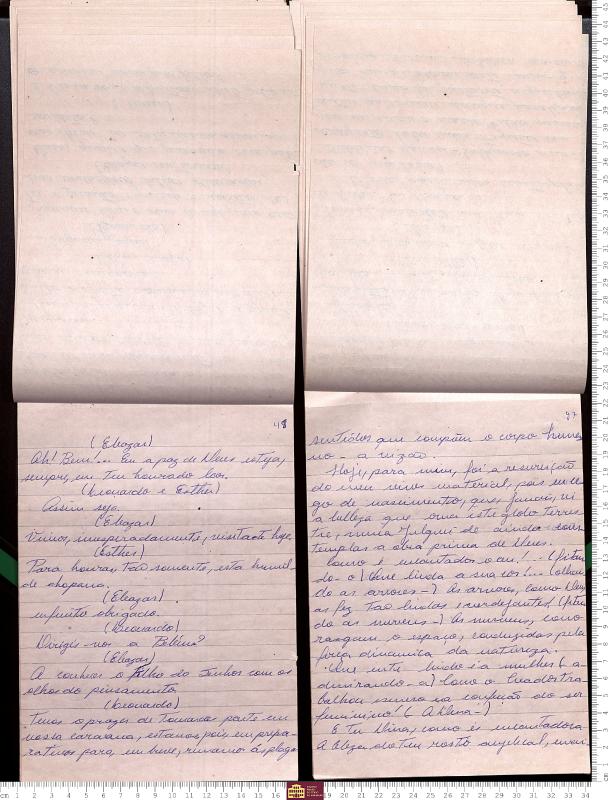 48
(Eleazar)
Ah! Bem!... Eu a paz de Deus esteja,
sempre, em teu honrado lar.
(Leonardo e Esther)
Assim seja.
(Eleazar)
Vimos, inesperadamente, visitarte hoje.
(Esther)
Para honrar, tão somente, esta humil
de chopana.
(Eleazar)
infinito obrigado.
(Leonardo)
Dirigis-vos a Belém?
(Eleazar)
A conhecer o Filho do Senhor com os
olhos do pensamento
(Leonardo)
Temos o prazer de tomardes parte em
nossa caravana, estamos pois em prepa-
rativos para, em breve, rumarmo ás plaga
97
sentidos que compõem o corpo huma
no - a vizão.
Hoje, para mim, foi a resurreição
do meu viver material, pois sou ce
go de nascimento, que, jamais, vi
a belleza que orna este globo terres
tre, nunca julguei de ainda con
templar a obra prima de Deus.
Como é encantador o céu!.. (fitan
do-o) Que linda a sua côr!... (olhan
do as arvores-) As arvores, como Deus
as fez tão lindas e verdejantes! (fitan
do as nuvens-) As nuvens, como
rasgam o espaço, conduzidas pela
força dinamica da natureza.
Que ente lindo é a mulher! (a
dimirando-a) Como o Creador tra
balhou na confeição do ser
feminino! (A Dina-)
E tu Dina, como és encantadora
A beleza do teu rosto angelical,